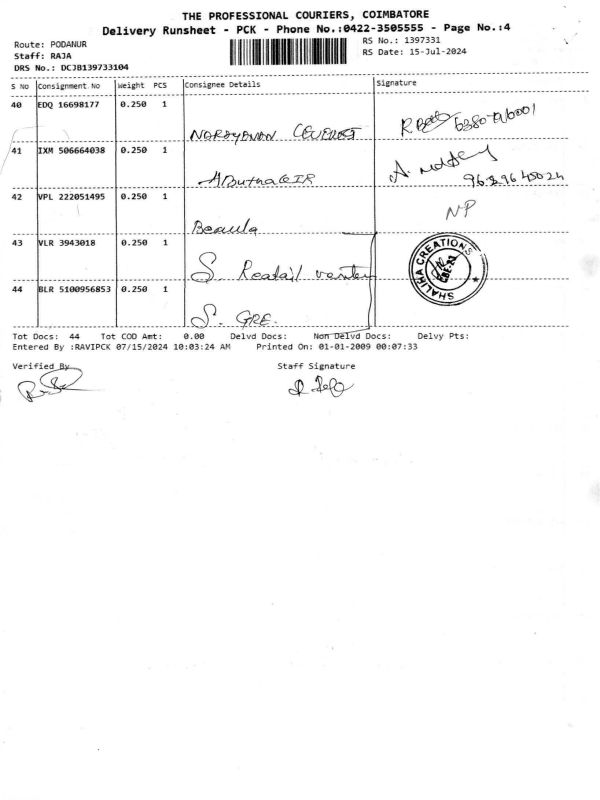 THE PROFESSIONAL COURIERS, COIMBATORE
Delivery Runsheet - PCK - Phone No.:0422-3505555 - Page No.:4
Route: PODANUR
RS No.: 1397331
Staff: RAJA
RS Date: 15-Jul-2024
DRS No.: DCJB139733104
S No Consignment No Weight PCS Consignee Details Signature
40 EDQ 16698177 0.250 1
41 IXM 506664038 0.250 1
96
42 VPL 222051495 0.250 1
Beaula NP
43 VLR 3943018 0.250 1
S. Reatail
SHALIKA CREATIONS
CBE-23
44 BLR 5100956853 0.250 1
S. GRE.
Tot Docs: 44 Tot COD Amt: 0.00 Delvd Docs: Non Delvd Docs: Delvy Pts:
Entered By :RAVIPCK 07/15/2024 10:03:24 AM Printed On: 01-01-2009 00:07:33
Verified By Staff Signature